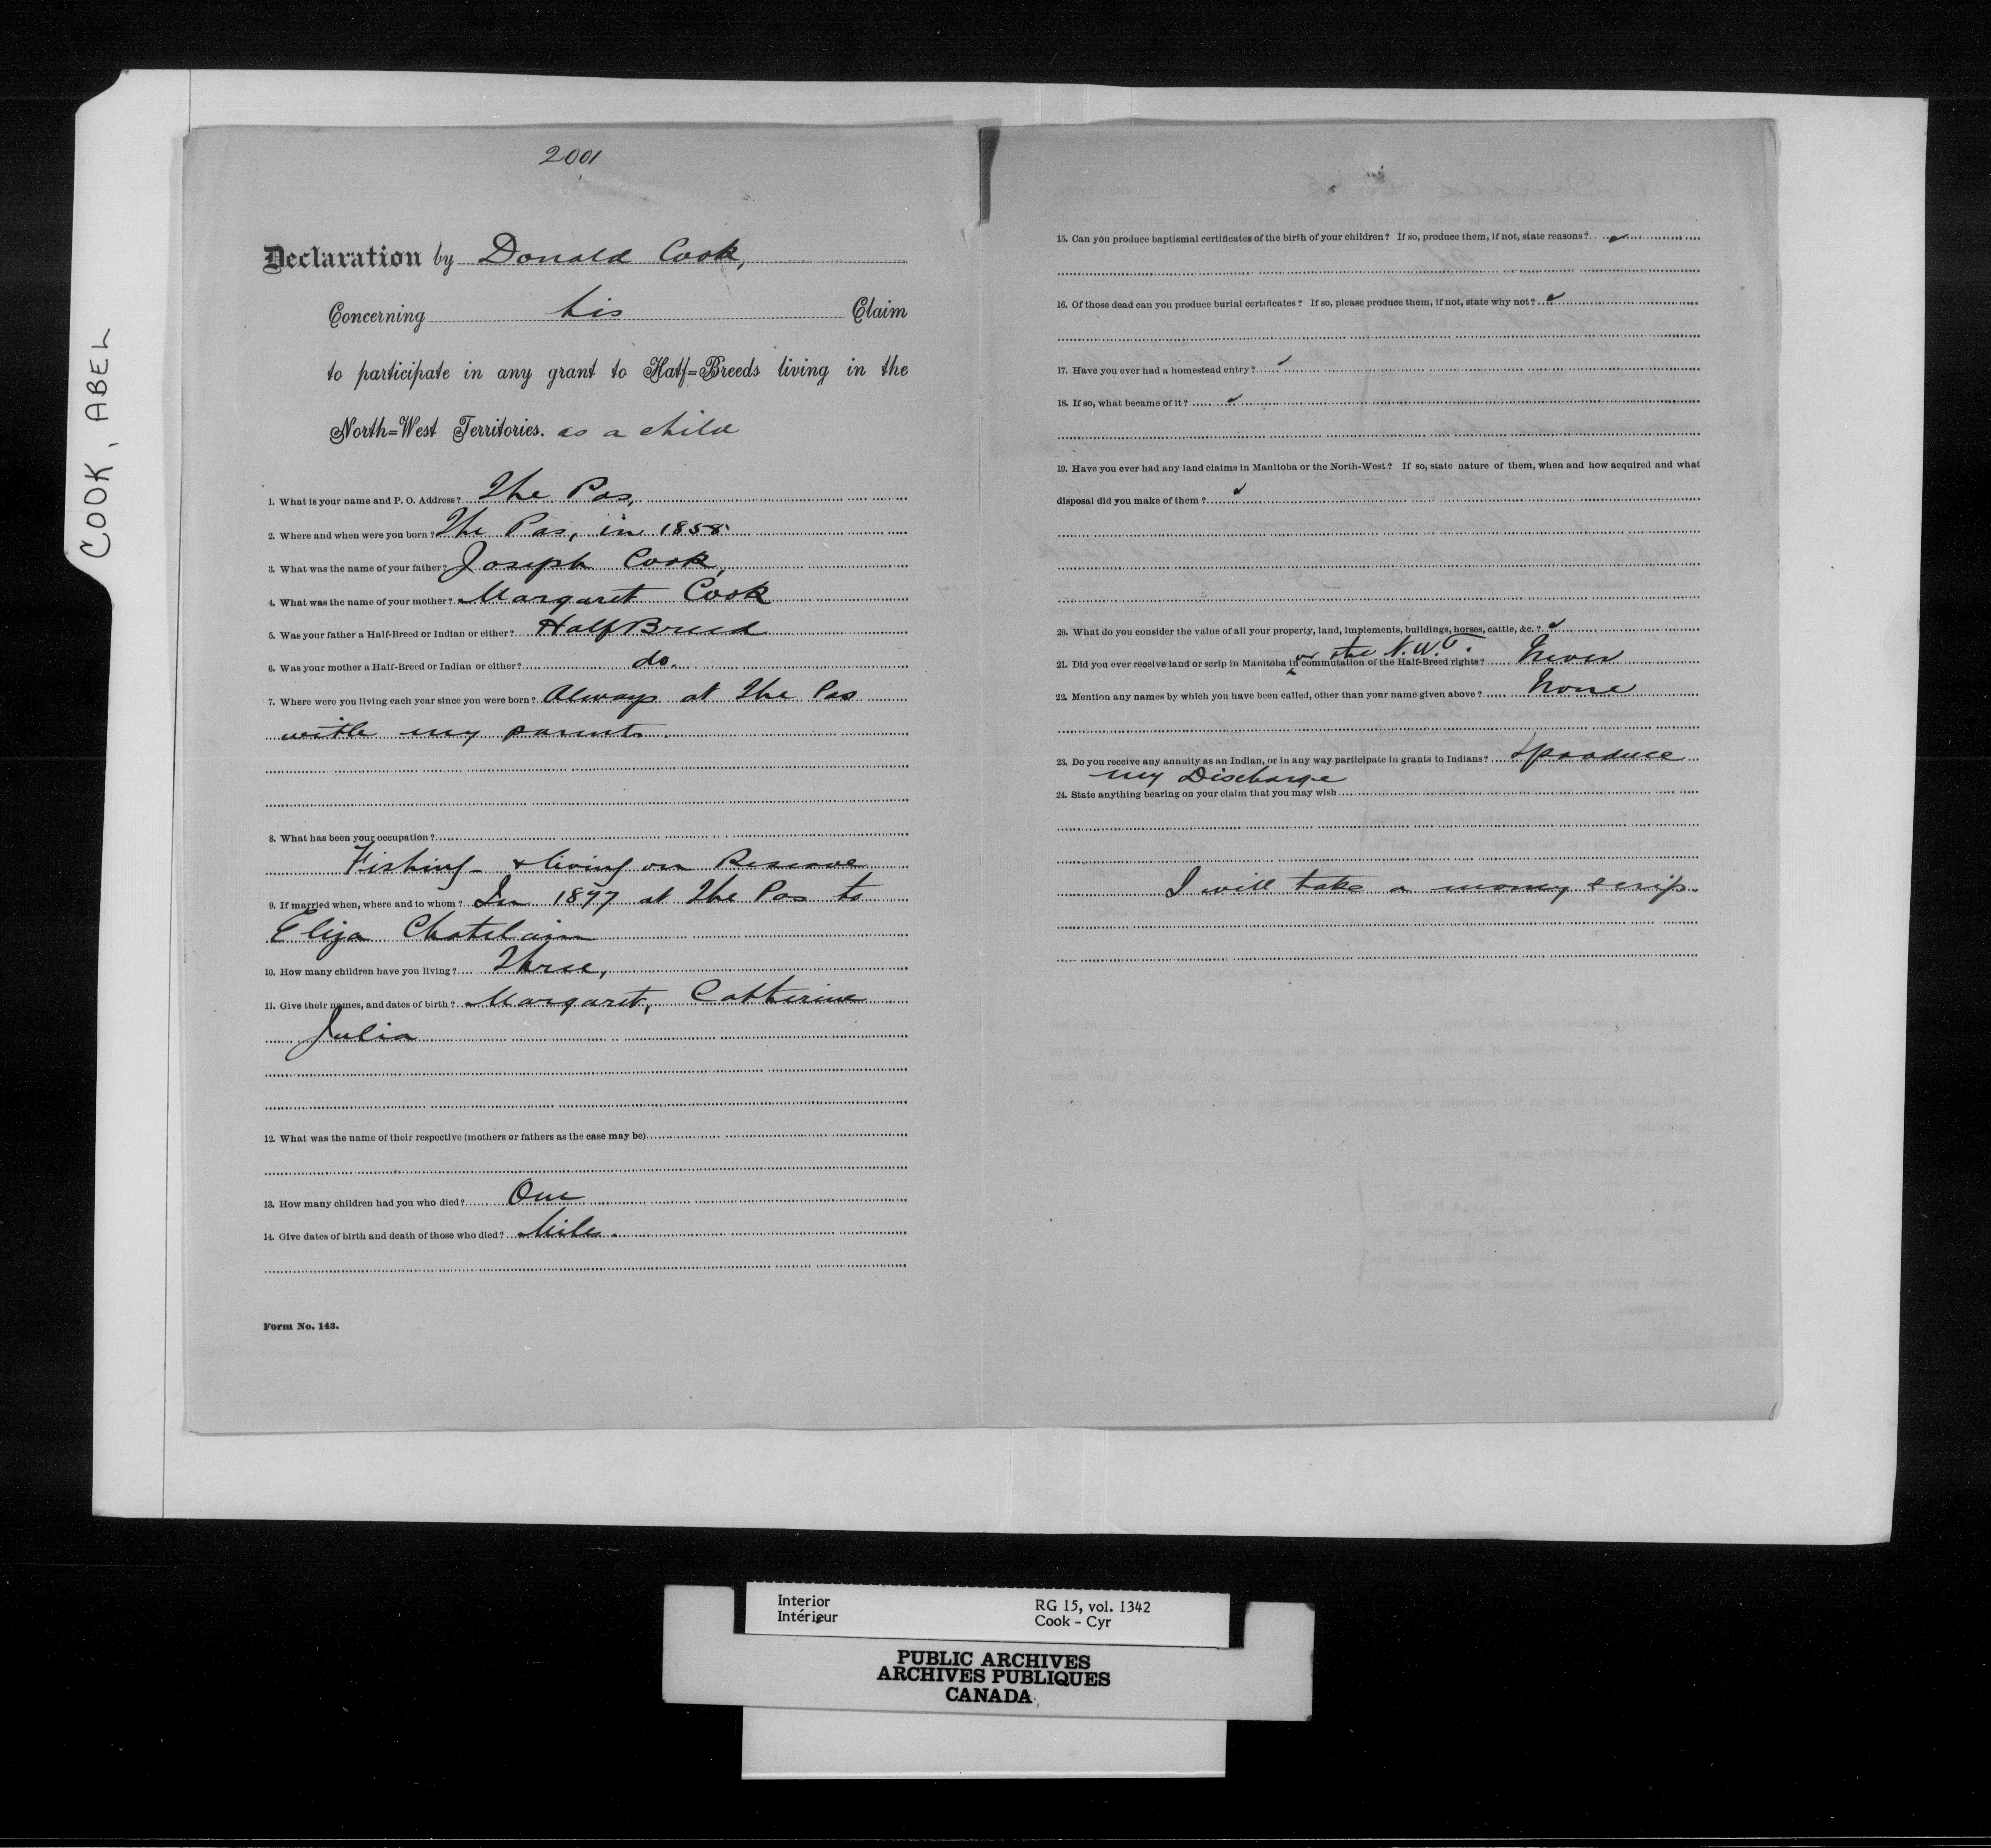 COOK, ABEL
2001
Declaration by Donald Cook,
Concerning his Claim
to participate in any grant to Half=Breeds living in the
North=West Territories. as a child
1. What is your name and P. O. Address? The Pas,
2. Where and when were you born? The Pas, in 1858
3. What was the name of your father? Joseph Cook,
4. What was the name of your mother? Margaret Cook
5. Was your father a Half-Breed or Indian or either? Half Breed
6. Was your mother a Half-Breed or Indian or either? do.
7. Where were you living each year since you were born? Always at The Pas
with my parents.
8. What has been your occupation?
Fishing & living on Reserve
9. If married when, where and to whom? In 1877 at The Pas to
Eliza Chatelain
10. How many children have you living? Three,
11. Give their names, and dates of birth? Margaret, Catherine
Julia
12. What was the name of their respective (mothers or fathers as the case may be)
13. How many children had you who died? One
14. Give dates of birth and death of those who died?
Form No. 143.
15. Can you produce baptismal certificates of the birth of your children? If so, produce them, if not, state reasons?
16. Of those dead can you produce burial certificates? If so, please produce them, if not, state why not?
17. Have you ever had a homestead entry?
18. If so, what became of it?
19. Have you ever had any land claims in Manitoba or the North-West? If so, state nature of them, when and how acquired and what
disposal did you make of them?
20. What do you consider the value of all your property, land, implements, buildings, horses, cattle, &c.?
or the N.W.T.
21. Did you ever receive land or scrip in Manitoba in commutation of the Half-Breed rights? Never
22. Mention any names by which you have been called, other than your name given above? None
23. Do you receive any annuity as an Indian, or in any way participate in grants to Indians? I produce
my Discharge
24. State anything bearing on your claim that you may wish
I will take a money scrip.
Interior
Intérieur
RG 15, vol. 1342
Cook - Cyr
PUBLIC ARCHIVES
ARCHIVES PUBLIQUES
CANADA